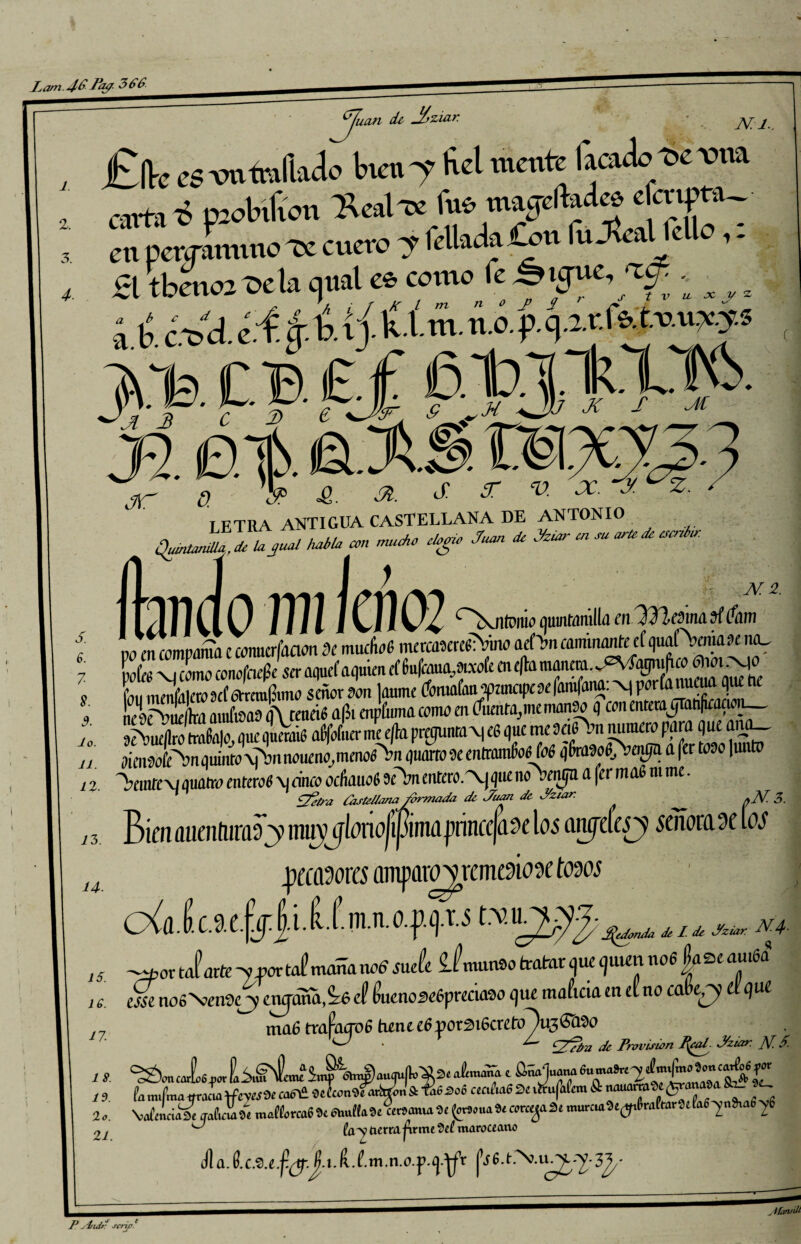 Lam. 46 Pag. 366
Juan de Yziar. N. 1.
1. Este es vn trasllado bien y fiel mente sacado de vna
2. carta d prohision Real de sus magestades escripta
3. en pergammno de cuero y sellada Con su Real sello,:
4. El thenor de la qual es como se Sigue, etc.
a b c d e f g h i j k l m n o p q r s t v u x y z
a.b.c.d.e.f.g.h.ij.k.l.m.n.o.p.q.2.r.s.t.v.u.x.y.z
A.b.C.D.E.f G.h.I.k.L.M.
A B C D E F G H J K L M
N.O.P.Q.R.S.T.V.X.Y.Z.
N O P Q. R. S. T. V. X. Y. Z.
LETRA ANTIGUA CASTELLANA DE ANTONIO
Quintanilla, de la qual habla con mucho elogio Juan de Yziar en su arte de escribir.
N. 2.
5. Stando mi señor Antonio quintanilla en Medina del Cam
6. po en compañia e conuersacion de muchos mercaderes: Vino ael vn caminante el qual Venia de na
7. poles y como conosciesse ser aquel a quien el buscaua, dixole en esta manera. Magnifico señor: yo
8. soy mensajero del Extremissimo señor don Jaume principe de y por la nueua que he
9. de Vuestra amistad teneis assi enpsuma como en Cuenta, me mando q con entera gratificacion
10. de Vuestro trabajo, que querais absoluer me esta pregunta y es que me deis Vn numero para que aña
11. diendole Vn quinto y Vn noueno, menos Vn quarto de entrambos los qbrados, Venga a ser todo junto
12. Veinte y quatro enteros y cinco ochauos de Vn entero. y que no Venga a ser mas ni me.
Letra Castellana formada de Juan de Yziar. N. 3.
13. Bien auenturada y muy gloriosissima princesa de los angeles y señora de los
14. pecadores amparo y remedio de todos
a.b.c.d.e.f.g.h.i.k.l.m.n.o.p.q.r.s t.v.u.x.y.z. Redonda de I. de Yziar. N. 4.
15. por tal arte y por tal maña nos suele El mundo tratar que quien nos ha de auisa
16. esse nos Vende y engaña, Es el bueno despreciado que malicia en el no cabe, y el que
17. mas trafagos tiene es por discreto Juzgado
Letra de Provision Real. Yziar. N. 5.
18. Don carlos por la Diuina Clemencia Emperador augusto Rey de alemaña e Doña Juana su madre y el mismo don carlos por
19. la misma gracia Reyes de castilla de leon de aragon & las dos cecilias de iherusalem & nauarra de Granada & de
20. Valencia de galicia de mallorcas de seuilla de cerdania de cordoua de corcega de murcia de gibraltar de las yndias ys
21. la y tierra firme del mar oceano
A a.b.c.d.e.f.g.h.i.k.l.m.n.o.p.q.r ss.t.v.u.x.y.z.
P. Andr. scrip.t